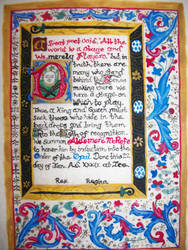 A Great poet said, "All the
world is a stage and
we merely Players," but in
truth there are
many who stand
behind the scenes
making sure we
have a stage on
which to play.
Thus, a King and Queen must
seek those who hide in the
and bring them
into the light of recognition.
We summon
to honor him by induction into the
Order of the Opal. Done this 22
day of Jan. AS XXIX at
Rex Regina